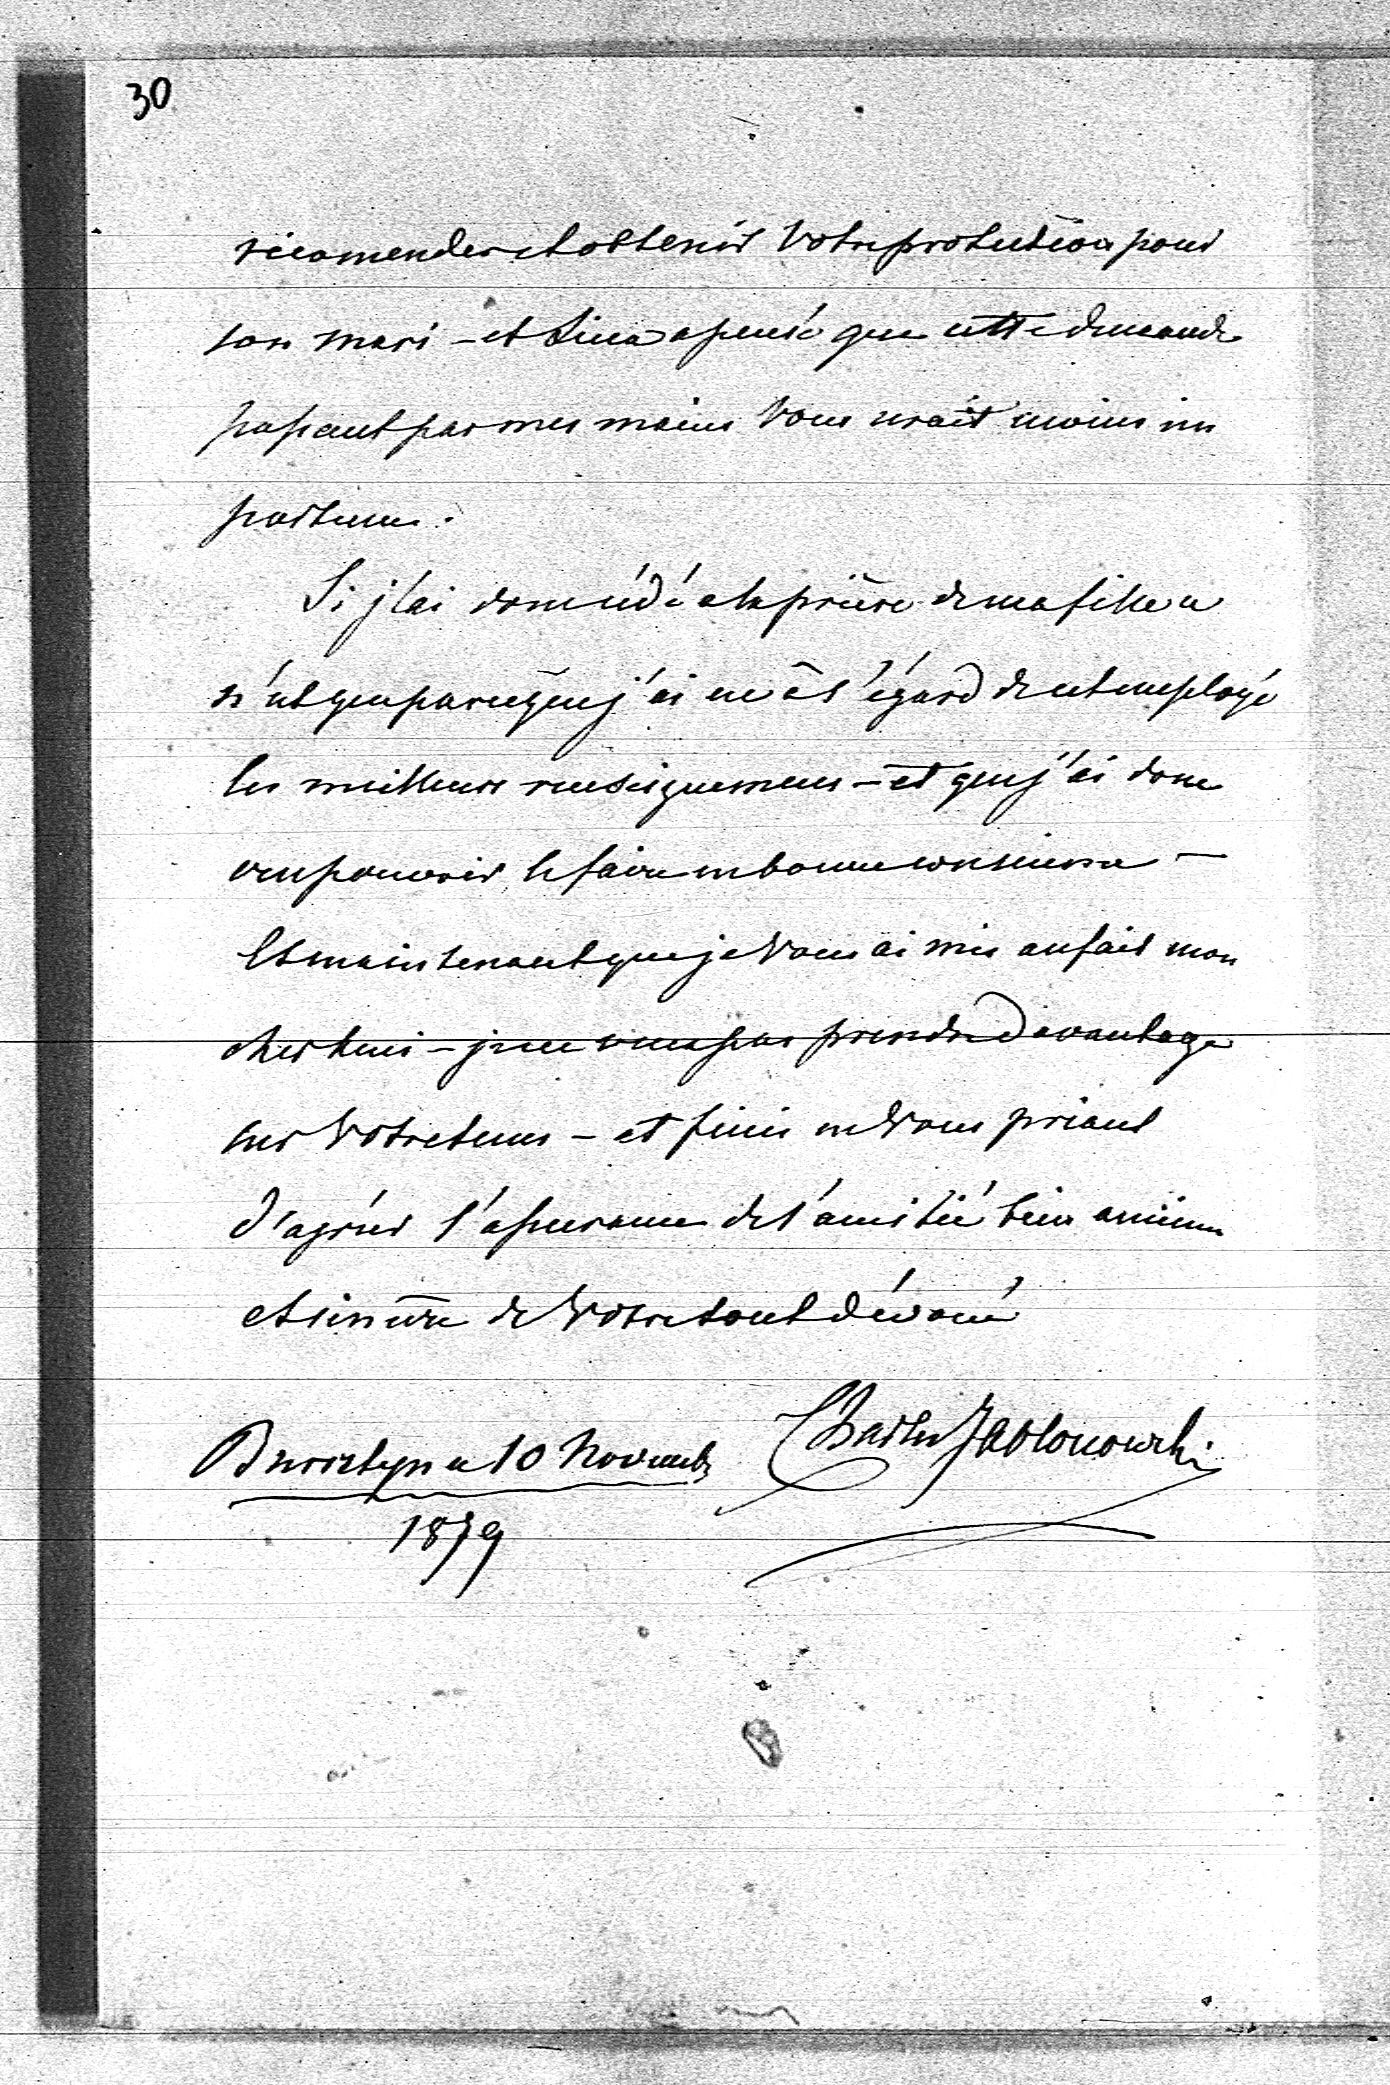 30
récomender et obtenir Votre protection pour
son mari – et Lina a pensé que cette demande
passant par mes mains Vous serait moins im
portune.
Si j'ai à la prière de ma fille ce
n'est que parceque j'ai eu à l'égard de cet employé
les meilleurs renseignemens – et que j'ai donc
cru pouvoir le faire en bonne conscience –
Et maintenant que je Vous ai mis au fait mon
cher – je ne veux pas prendre davantage
sur Votre tems – et finis en Vous priant
d'agréer l'assurance de l'amitié bien
et sincère de Votre tout dévoué
Charles Jablonowski
Bursztyn ce 10 Novemb
1879